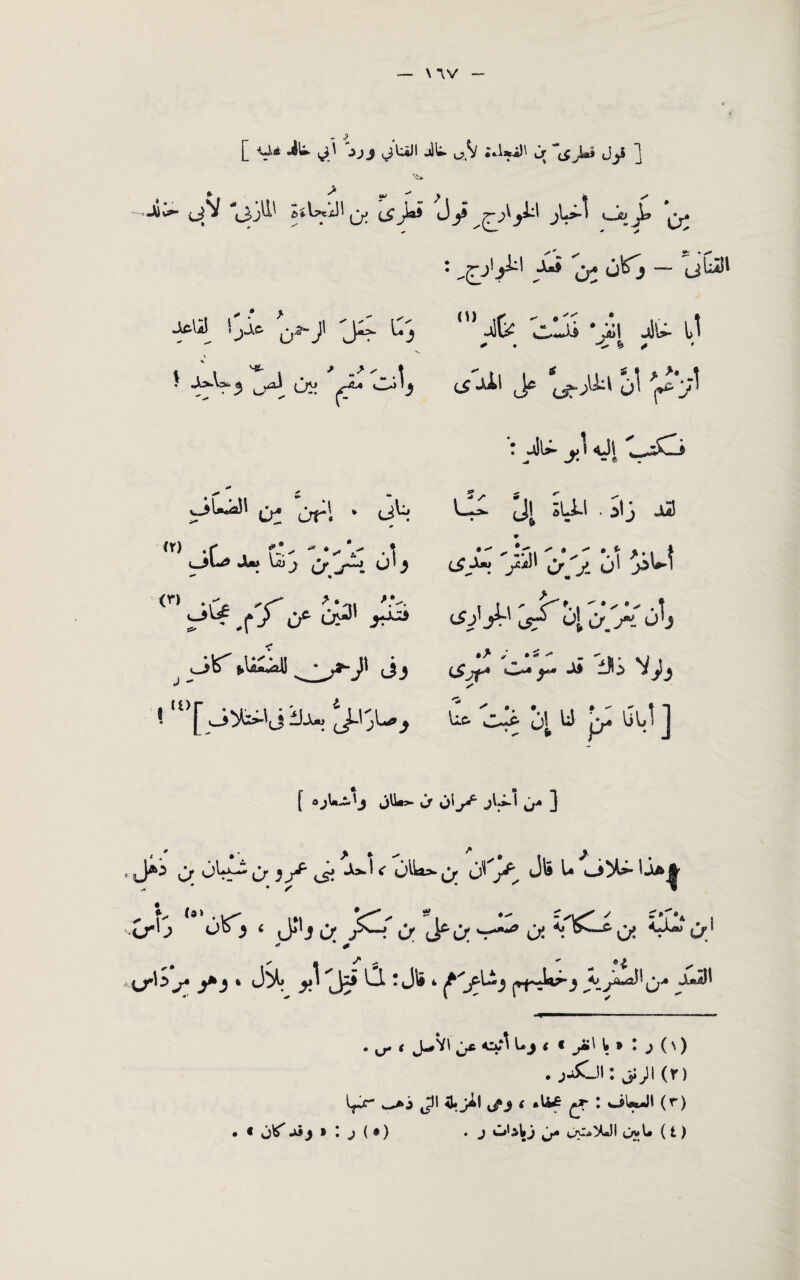 — ١٦٧ —
[ قول قطري بن الفجاءة لأبي خالد القناني ورد أبي خالد عليه ]
من طريف أخبار الخوارج قول قطري بن الفجاءة المازني لأبي خالد
القناني — وكان من قعد الخوارج :
أبا خالد إنفر فلست بخالد (١) وما جعل الرحمن عذرا لقاعد
أتزعم أن الخارجي على الهدى وأنت مقيم بين لص وجاحد !
فكتب إليه أبو خالد :
لقد زاد الحياة إلي حبا بناتي ، إنهن من الضعاف
أحاذر أن يرين الفقر بعدي وأن يشربن رنقا بعد صاف (٢)
وأن يعرين إن كسي الجواري فتنبو العين عن كرم عجاف (٣)
ولولا ذاك قد سومت مهري وفي الرحمن للضعفاء كاف
[ أبانا من لنا إن غبت عنا وصار الحي بعدك في اختلاف ] (٤) !
[ من أخبار عمران بن حطان وأشعاره ]
هذا خلاف ما قال عمران بن حطان ، أحد بني عمرو بن شيبان بن ذهل ،
ابن ثعلبة بن عكابة بن صعب بن علي بن بكر بن وائل ، وكان (٥) رأس
القعد من الصفرية وخطيبهم وشاعرهم ، قال : لما قتل أبو بلال ، وهو مرداس
(١) ر : « يا انفر » ، وما أثبته عن الأصل ، س .
(٢) الرنق : الكدر .
(٣) العجاف : جمع عجفاء ، وهي المهزولة التي ذهب سمنها
(٤) مابين العلامتين من زيادات ر . (٥) ر : « وقد كان » .